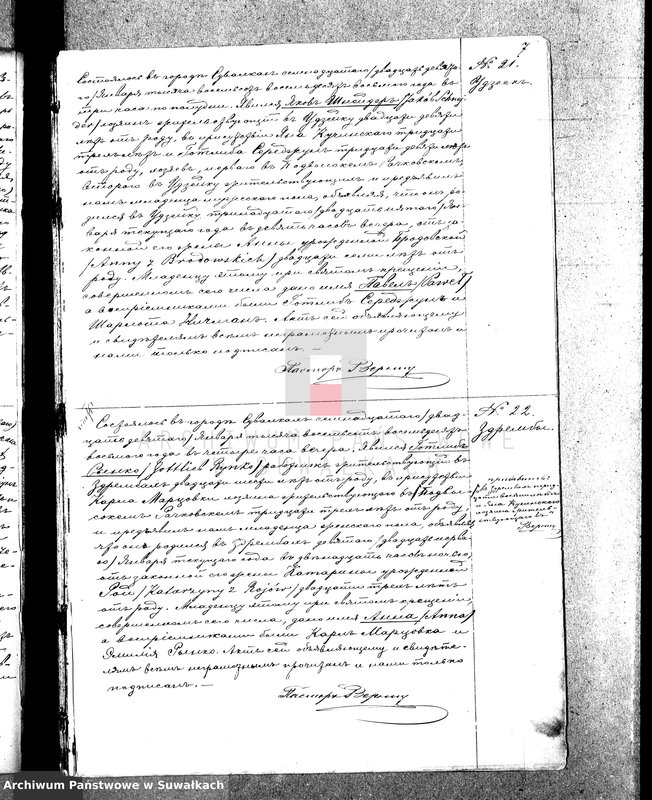 7
№ 21.
Удзеек.
Состоялось въ городѣ Сувалкахъ семнадцатаго /двадцать девята-
го/ Января тысяча восемьсотъ восемьдесятъ восьмого года въ
три часа по полудни. Явился Яковъ Шнейдеръ /Jakób Schny-
der/ хозяинъ жительствующій въ Удзейку двадцати девяти
лѣтъ отъ роду, въ присутствіи Яна Куминскаго тридцати
трехъ лѣтъ и Готлиба тридцати девяти лѣтъ
отъ роду, хозяевъ, перваго въ Подвысокомъ Рачковскомъ,
второго въ Удзейку жительствующихъ и предъявилъ
намъ младенца мужескаго пола, объявляя, что онъ ро-
дился въ Удзейку тринадцатаго /двадцать пятаго/ Ян-
варя текущаго года въ девять часовъ вечера, отъ за-
конной его жены Анны урожденной Бродовской
/Anny z Brodowskich/ двадцати семи лѣтъ отъ
роду. Младенцу этому при святомъ крещеніи,
совершенномъ сего числа дано имя Павелъ /Paweł/
а воспріемниками были Готлибъ и
Шарлота Никманъ. Актъ сей объявляющему
и свидѣтелямъ всѣмъ неграмотнымъ прочитанъ и
нами только подписанъ. —
Пасторъ
№ 22.
Здрембы.
Состоялось въ городѣ Сувалкахъ семнадцатаго /двад-
цать девятаго/ Января тысяча восемьсотъ восемьдесятъ
восьмого года въ четыре часа вечера. Явился Готлибъ
Рынко /Gottlieb Rynko/ работникъ жительствующій въ
Здрембахъ двадцати шести лѣтъ отъ роду, въ присутствіи
Карла Марцовки хозяина жительствующаго въ Подвы-
сокомъ Рачковскомъ тридцати трехъ лѣтъ отъ роду
и предъявилъ намъ младенца женскаго пола, объявляя
что онъ родился въ Здрембахъ девятаго /двадцать перва-
го/ Января текущаго года въ двѣнадцать часовъ ночи,
отъ законной его жены Катарины урожденной
/Katarzyny z Rojów/ двадцати трехъ лѣтъ
отъ роду. Младенцу этому при святомъ крещеніи
совершенномъ сего числа, дано имя Анна /Anna/
а воспріемниками были Карлъ Марцовка и
Эмилія Рынко. Актъ сей объявляющему и свидѣте-
лямъ всѣмъ неграмотнымъ прочитанъ и нами только
подписанъ. —
Пасторъ
Archiwum Państwowe w Suwałkach